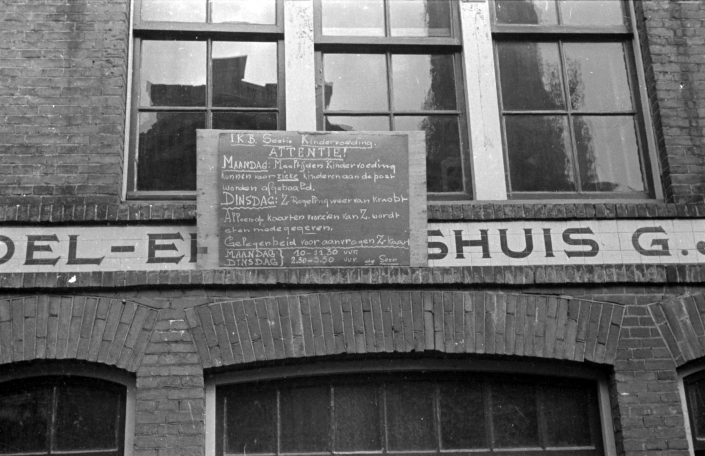 I.K.B. Sectie Kindervoeding.
ATTENTIE!
MAANDAG: Maaltijden Kindervoeding
kunnen voor zieke kinderen aan de post
worden afgehaald.
DINSDAG: Z. Regeling weer van kracht
Alleen of kaarten voorzien van Z. wordt
eten medegegeven.
Gelegenheid voor aanvragen Z-Kaart
MAANDAG } 10-11.30 uur
DINSDAG } 2.30-3.30 uur. de Secr.
DEL-E SHUIS G.